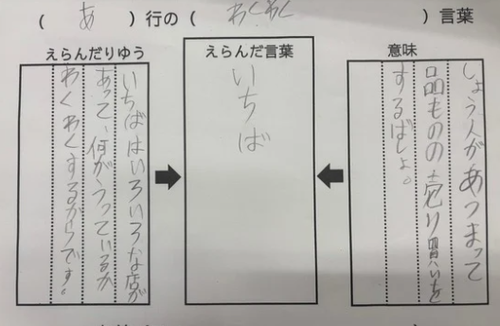 ( あ )行の( わくわく )言葉
意味
しょう人があつまって
品ものの売り買いを
するばしょ。
えらんだ言葉
いちば
えらんだりゆう
いちばはいろいろな店が
あって、何がうっているか
わくわくするからです。